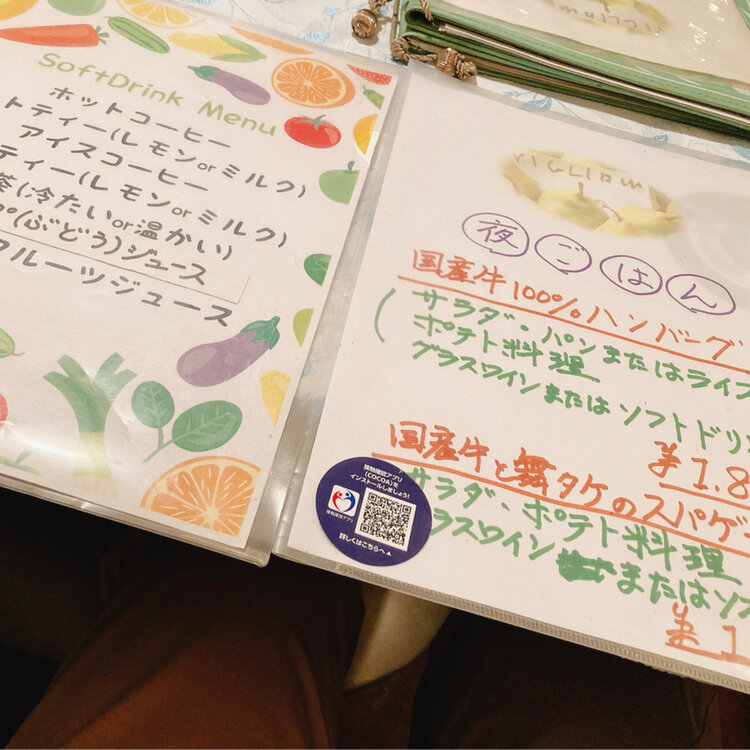 SoftDrink Menu
ホットコーヒー
トティー(レモンorミルク)
アイスコーヒー
ティー(レモンorミルク)
茶(冷たいor温かい)
(ぶどう)ジュース
フルーツジュース
夜ごはん
国産牛100%ハンバーグ
(サラダ・パンまたはライ
ポテト料理
グラスワインまたはソフトドリ
¥1.8
国産牛と舞タケのスパゲ
サラダ・ポテト料理
グラスワイン または ソフ
¥1
接触確認アプリ
(COCOA)を
インストールしましょう!
接触確認アプリ
詳しくはこちらへ▲